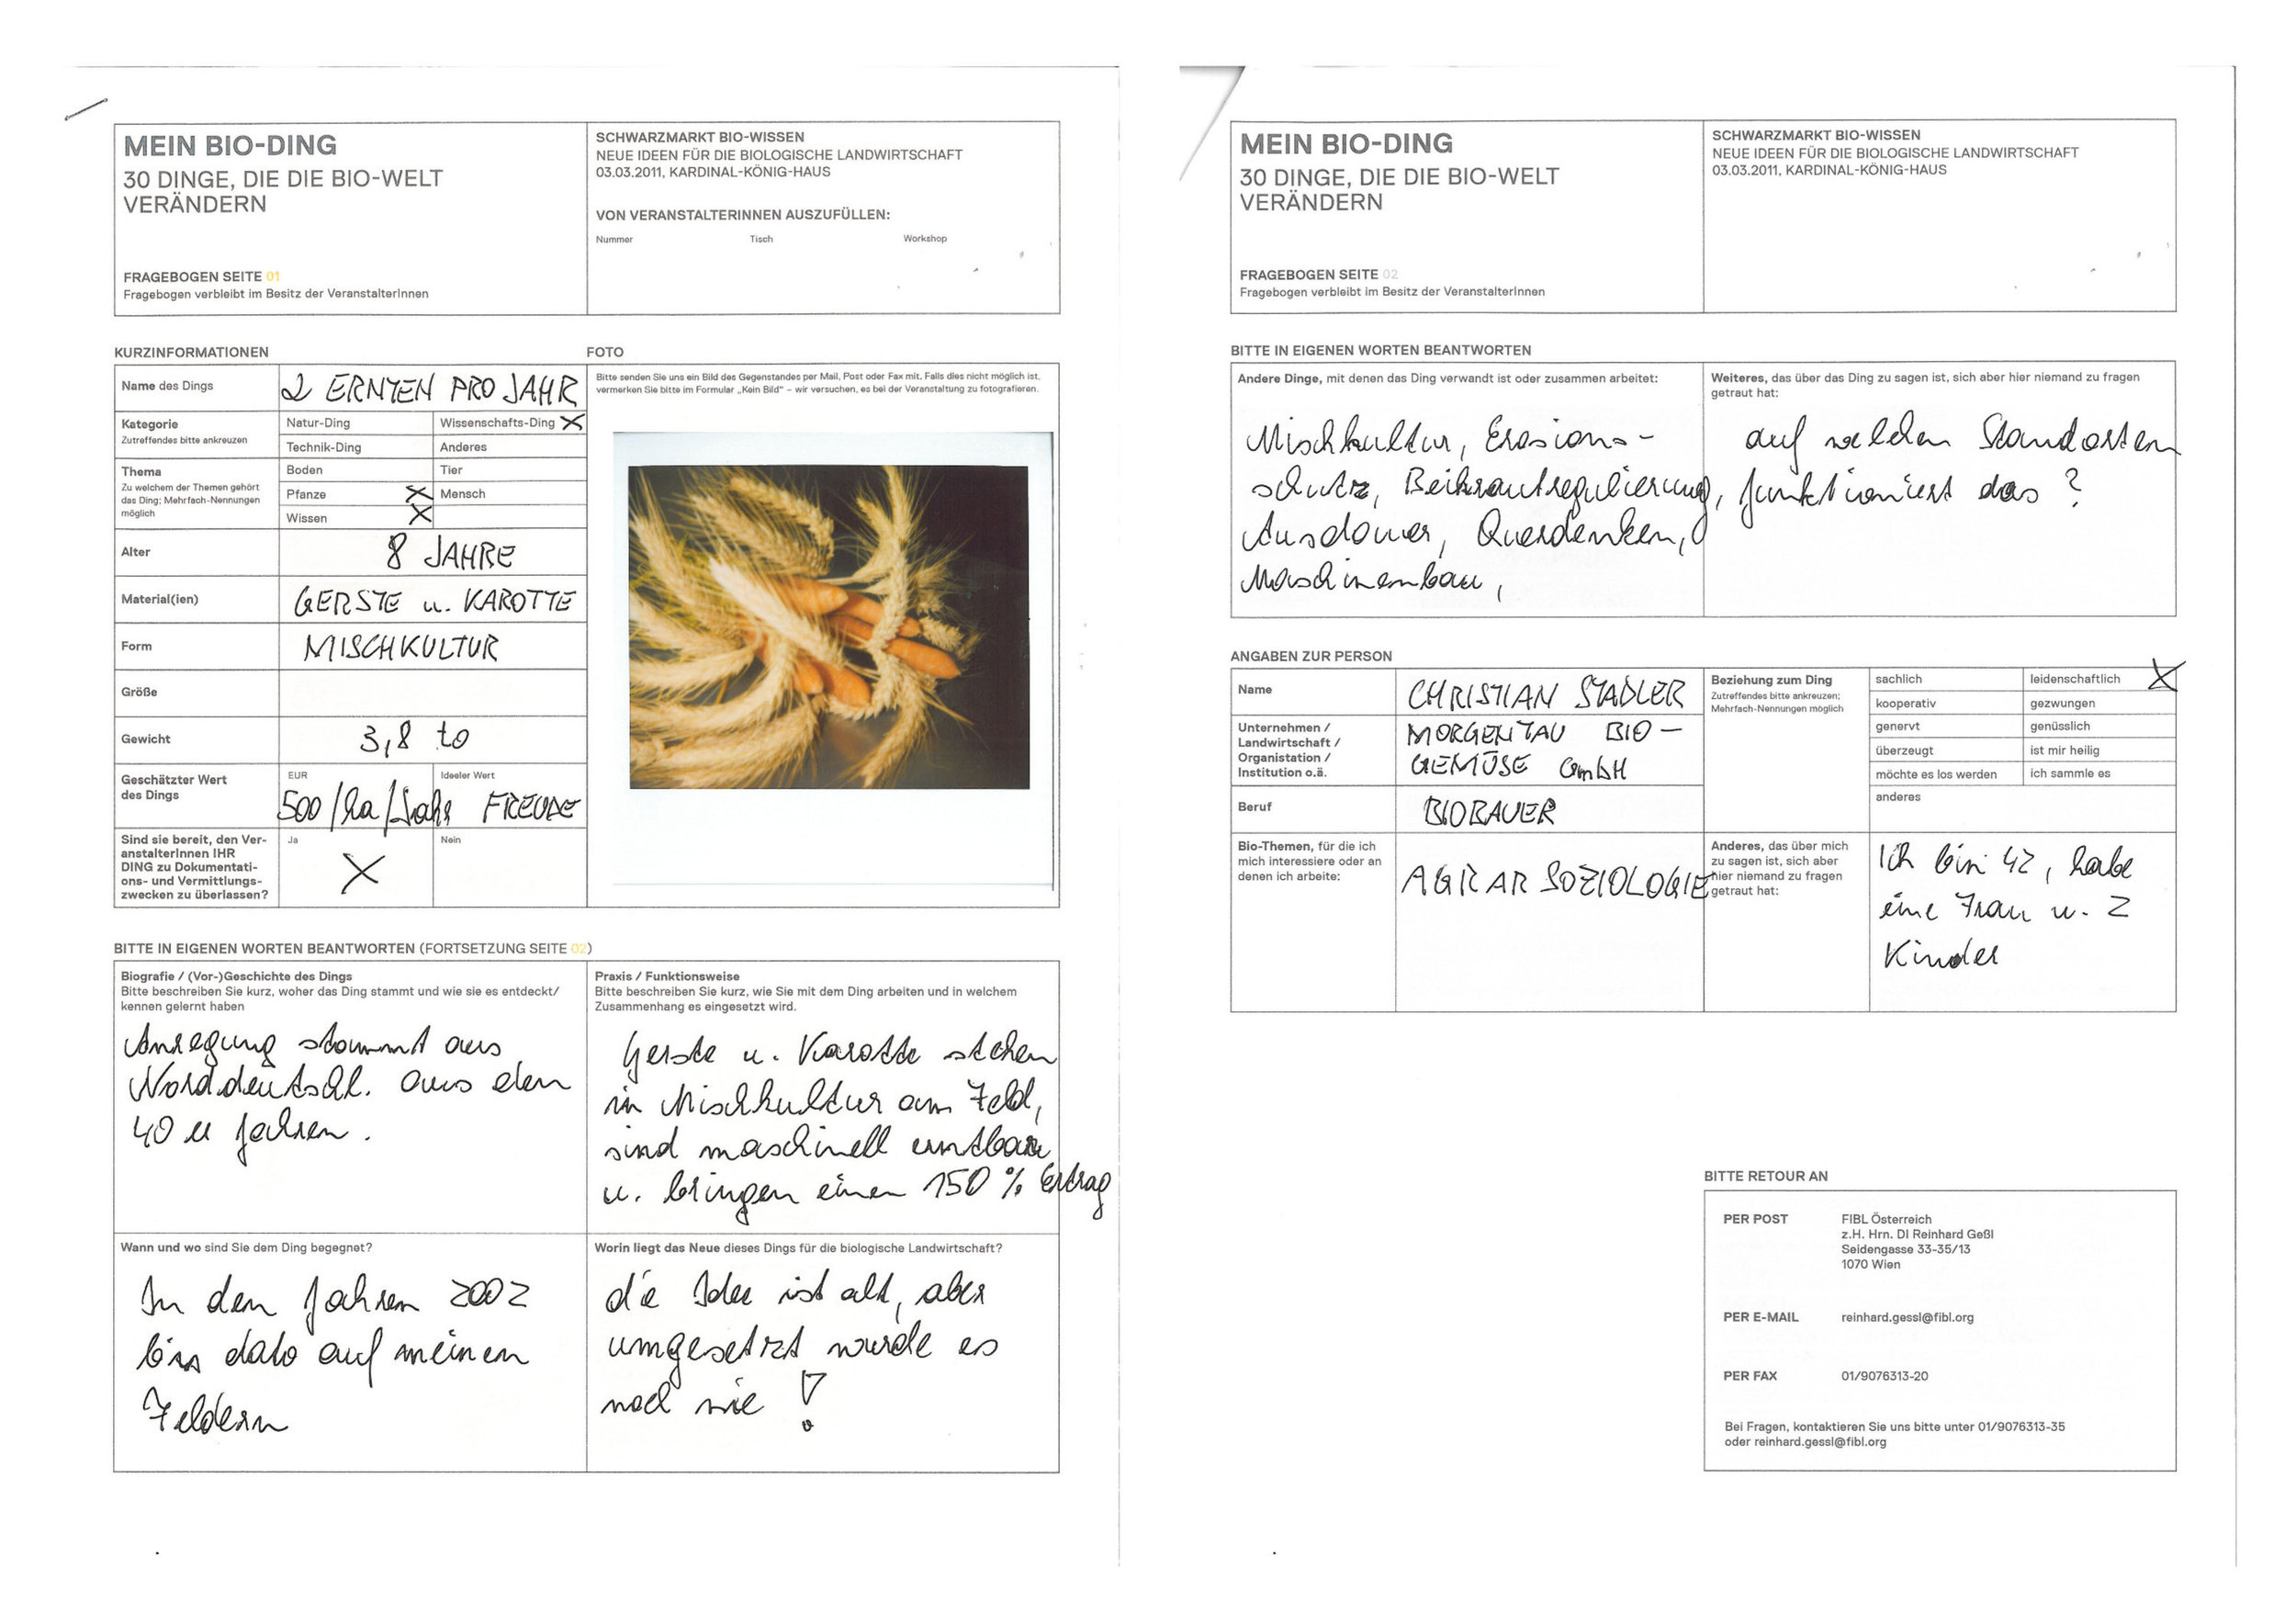 MEIN BIO-DING
30 DINGE, DIE DIE BIO-WELT
VERÄNDERN
FRAGEBOGEN SEITE 01
Fragebogen verbleibt im Besitz der VeranstalterInnen
SCHWARZMARKT BIO-WISSEN
NEUE IDEEN FÜR DIE BIOLOGISCHE LANDWIRTSCHAFT
03.03.2011, KARDINAL-KÖNIG-HAUS
VON VERANSTALTERINNEN AUSZUFÜLLEN:
Nummer Tisch Workshop
KURZINFORMATIONEN
Name des Dings
2 ERNTEN PRO JAHR
Kategorie
Zutreffendes bitte ankreuzen
Natur-Ding
Wissenschafts-Ding X
Technik-Ding
Anderes
Thema
Zu welchem der Themen gehört
das Ding; Mehrfach-Nennungen
möglich
Boden
Tier
Pfanze X
Mensch
Wissen X
Alter
8 JAHRE
Material(ien)
GERSTE u. KAROTTE
Form
MISCHKULTUR
Größe
Gewicht
3,8 to
Geschätzter Wert
des Dings
EUR
500/ha/Jahr
Ideeler Wert
FREUDE
Sind sie bereit, den Ver-
anstalterInnen IHR
DING zu Dokumentati-
ons- und Vermittlungs-
zwecken zu überlassen?
Ja
X
Nein
FOTO
Bitte senden Sie uns ein Bild des Gegenstandes per Mail, Post oder Fax mit. Falls dies nicht möglich ist,
vermerken Sie bitte im Formular „Kein Bild" – wir versuchen, es bei der Veranstaltung zu fotografieren.
BITTE IN EIGENEN WORTEN BEANTWORTEN (FORTSETZUNG SEITE 02)
Biografie / (Vor-)Geschichte des Dings
Bitte beschreiben Sie kurz, woher das Ding stammt und wie sie es entdeckt/
kennen gelernt haben
Anregung stammt aus
Norddeutschl. aus den
40er Jahren.
Praxis / Funktionsweise
Bitte beschreiben Sie kurz, wie Sie mit dem Ding arbeiten und in welchem
Zusammenhang es eingesetzt wird.
Gerste u. Karotte stehen
in Mischkultur am Feld,
sind maschinell erntbar
u. bringen einen 150 % Ertrag
Wann und wo sind Sie dem Ding begegnet?
In den Jahren 2002
bis dato auf meinen
Feldern
Worin liegt das Neue dieses Dings für die biologische Landwirtschaft?
die Idee ist alt, aber
umgesetzt wurde es
noch nie !
MEIN BIO-DING
30 DINGE, DIE DIE BIO-WELT
VERÄNDERN
FRAGEBOGEN SEITE 02
Fragebogen verbleibt im Besitz der VeranstalterInnen
SCHWARZMARKT BIO-WISSEN
NEUE IDEEN FÜR DIE BIOLOGISCHE LANDWIRTSCHAFT
03.03.2011, KARDINAL-KÖNIG-HAUS
BITTE IN EIGENEN WORTEN BEANTWORTEN
Andere Dinge, mit denen das Ding verwandt ist oder zusammen arbeitet:
Mischkultur, Erosions-
schutz, Beikrautregulierung,
Ausdauer, Querdenken,
Maschinenbau,
Weiteres, das über das Ding zu sagen ist, sich aber hier niemand zu fragen
getraut hat:
auf welchen Standorten
funktioniert das ?
ANGABEN ZUR PERSON
Name
CHRISTIAN STADLER
Unternehmen /
Landwirtschaft /
Organistation /
Institution o.ä.
MORGENTAU BIO-
GEMÜSE GmbH
Beruf
BIOBAUER
Bio-Themen, für die ich
mich interessiere oder an
denen ich arbeite:
AGRARSOZIOLOGIE
Beziehung zum Ding
Zutreffendes bitte ankreuzen;
Mehrfach-Nennungen möglich
sachlich
leidenschaftlich X
kooperativ
gezwungen
genervt
genüsslich
überzeugt
ist mir heilig
möchte es los werden
ich sammle es
anderes
Anderes, das über mich
zu sagen ist, sich aber
hier niemand zu fragen
getraut hat:
Ich bin 42, habe
eine Frau u. 2
Kinder
BITTE RETOUR AN
PER POST
FIBL Österreich
z.H. Hrn. DI Reinhard Geßl
Seidengasse 33-35/13
1070 Wien
PER E-MAIL
reinhard.gessl@fibl.org
PER FAX
01/9076313-20
Bei Fragen, kontaktieren Sie uns bitte unter 01/9076313-35
oder reinhard.gessl@fibl.org